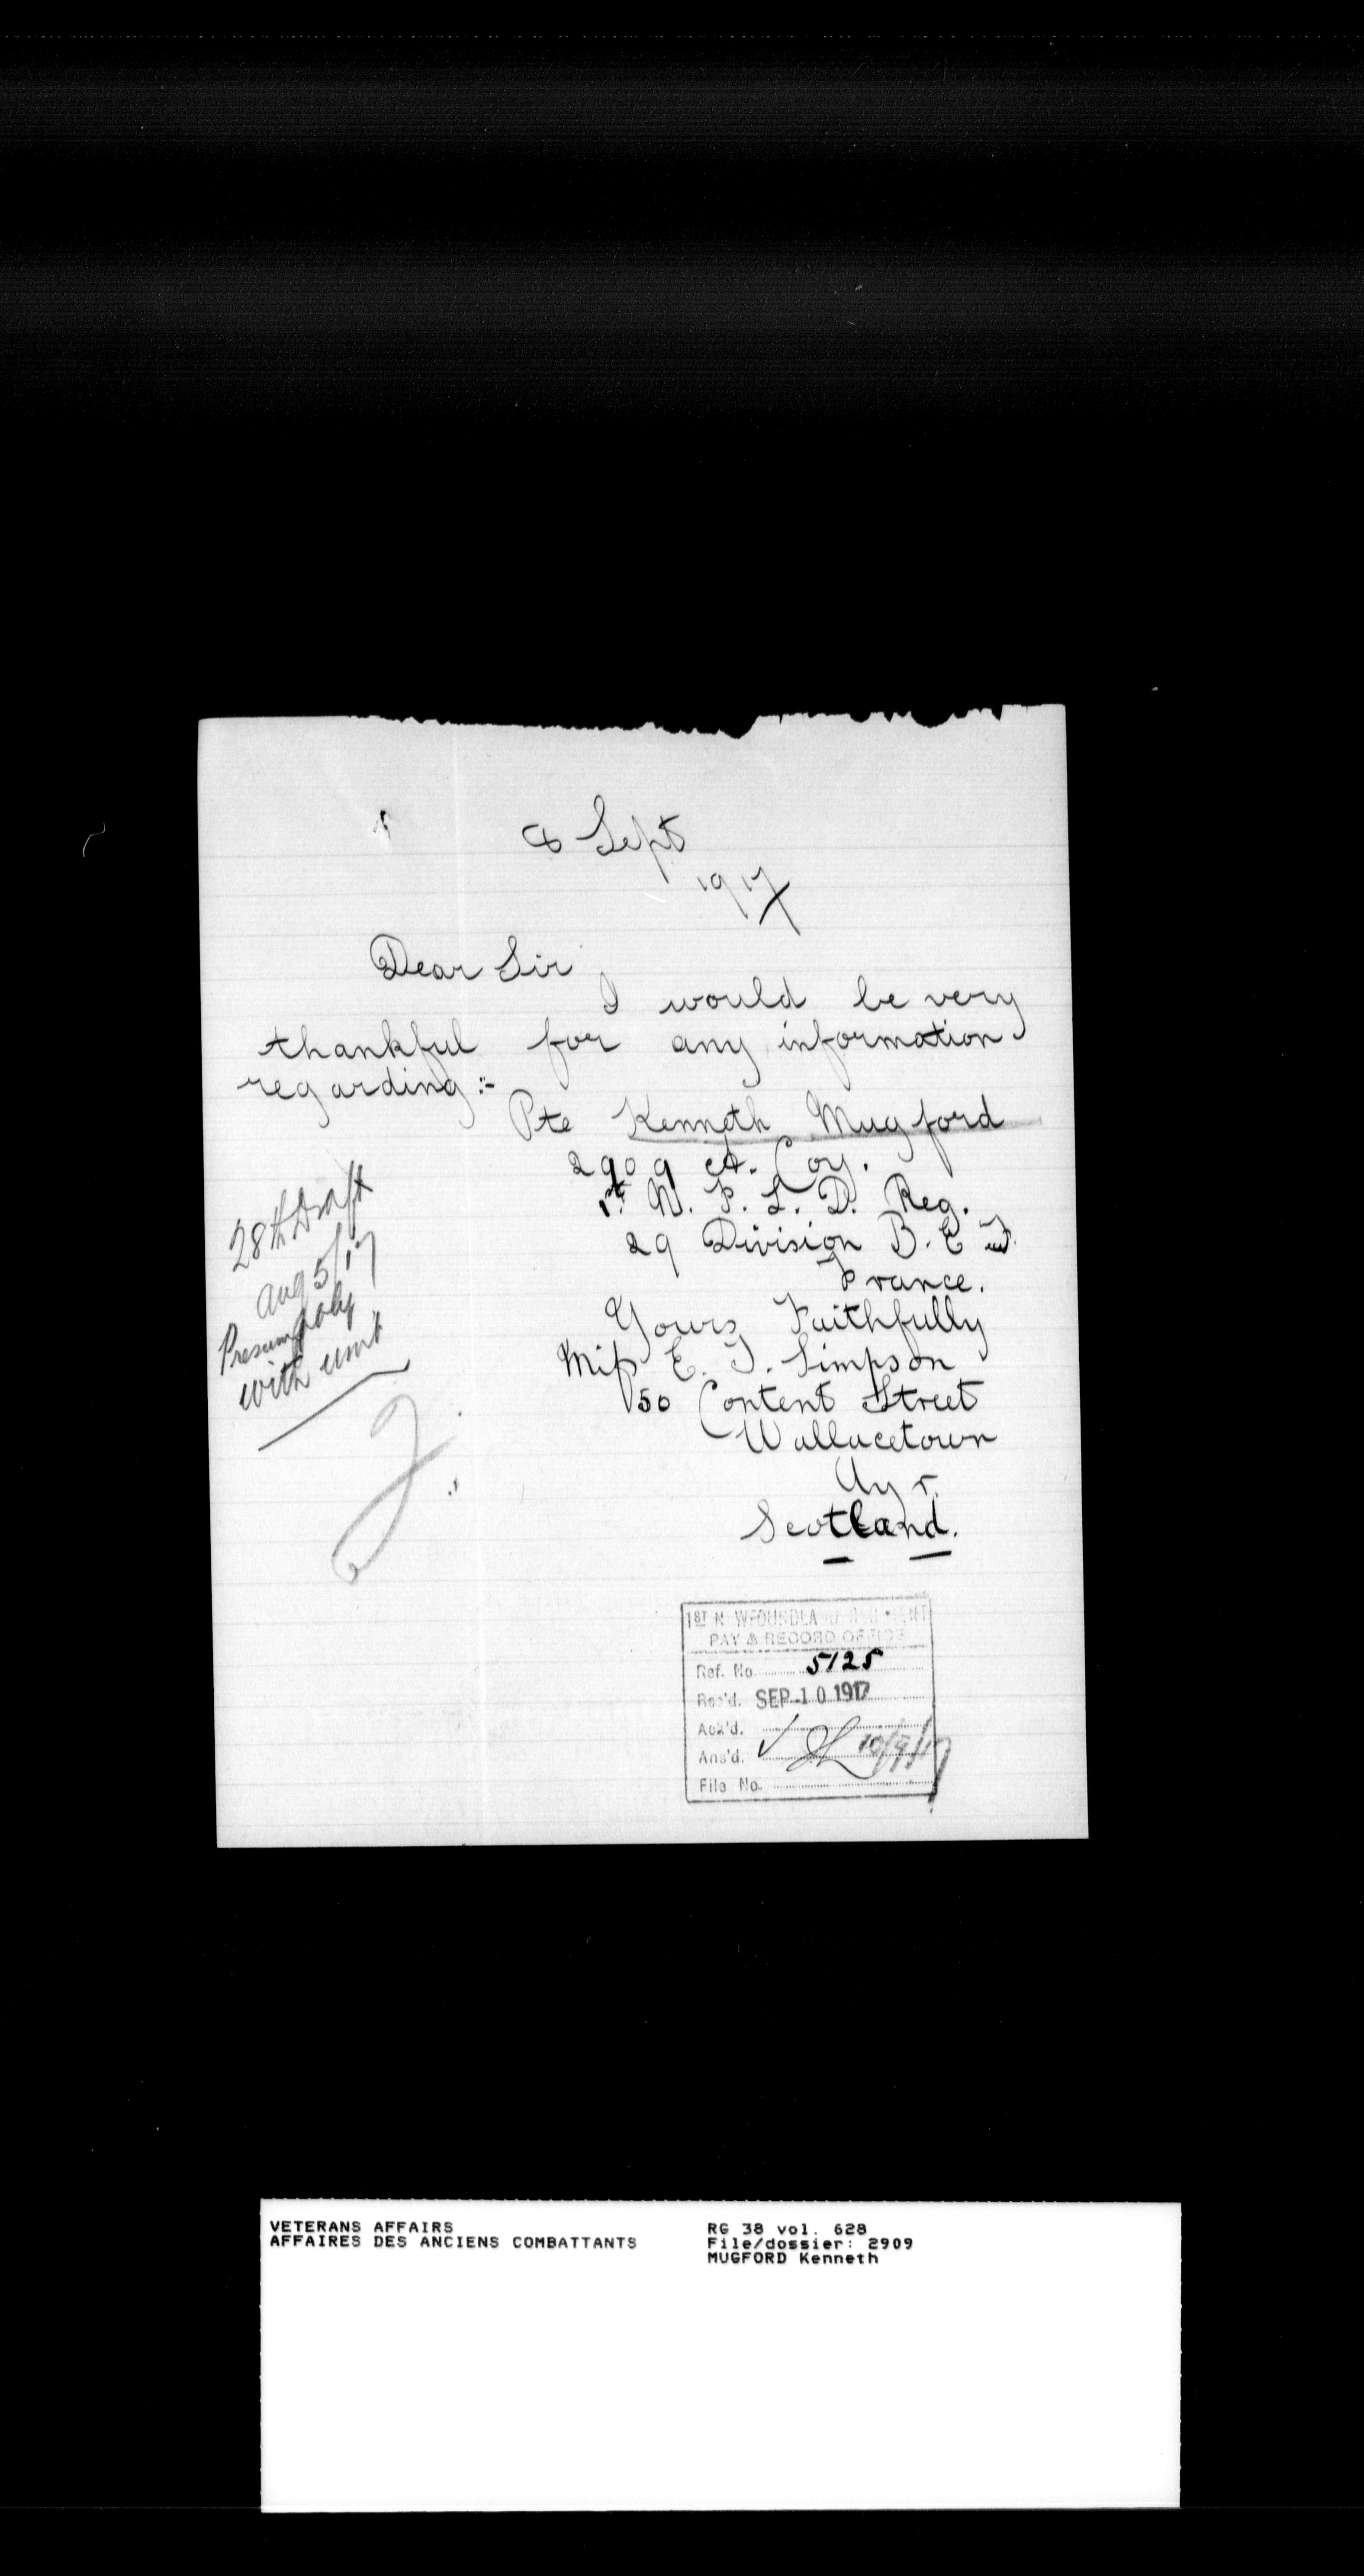 8 Sept
1917
Dear Sir
I would be very
thankful for any information
regarding:-
Pte Kenneth Mugford
2909 A. Coy.
1st N. F. L. D. Reg.
29 Division B. E. F.
France.
Yours Faithfully
Miss E. T. Simpson
150 Content Street
Wallacetown
Ayr.
Scotland.
28th Draft
Aug 5/17
Presumably
with unit
1ST N WFOUNDLA
PAY & RECORD OFFICE
Ref. No. 5125
Rec'd. SEP 10 1917
Ack'd.
Ans'd. 10/9/17
File No.
VETERANS AFFAIRS
AFFAIRES DES ANCIENS COMBATTANTS
RG 38 vol. 628
File/dossier: 2909
MUGFORD Kenneth